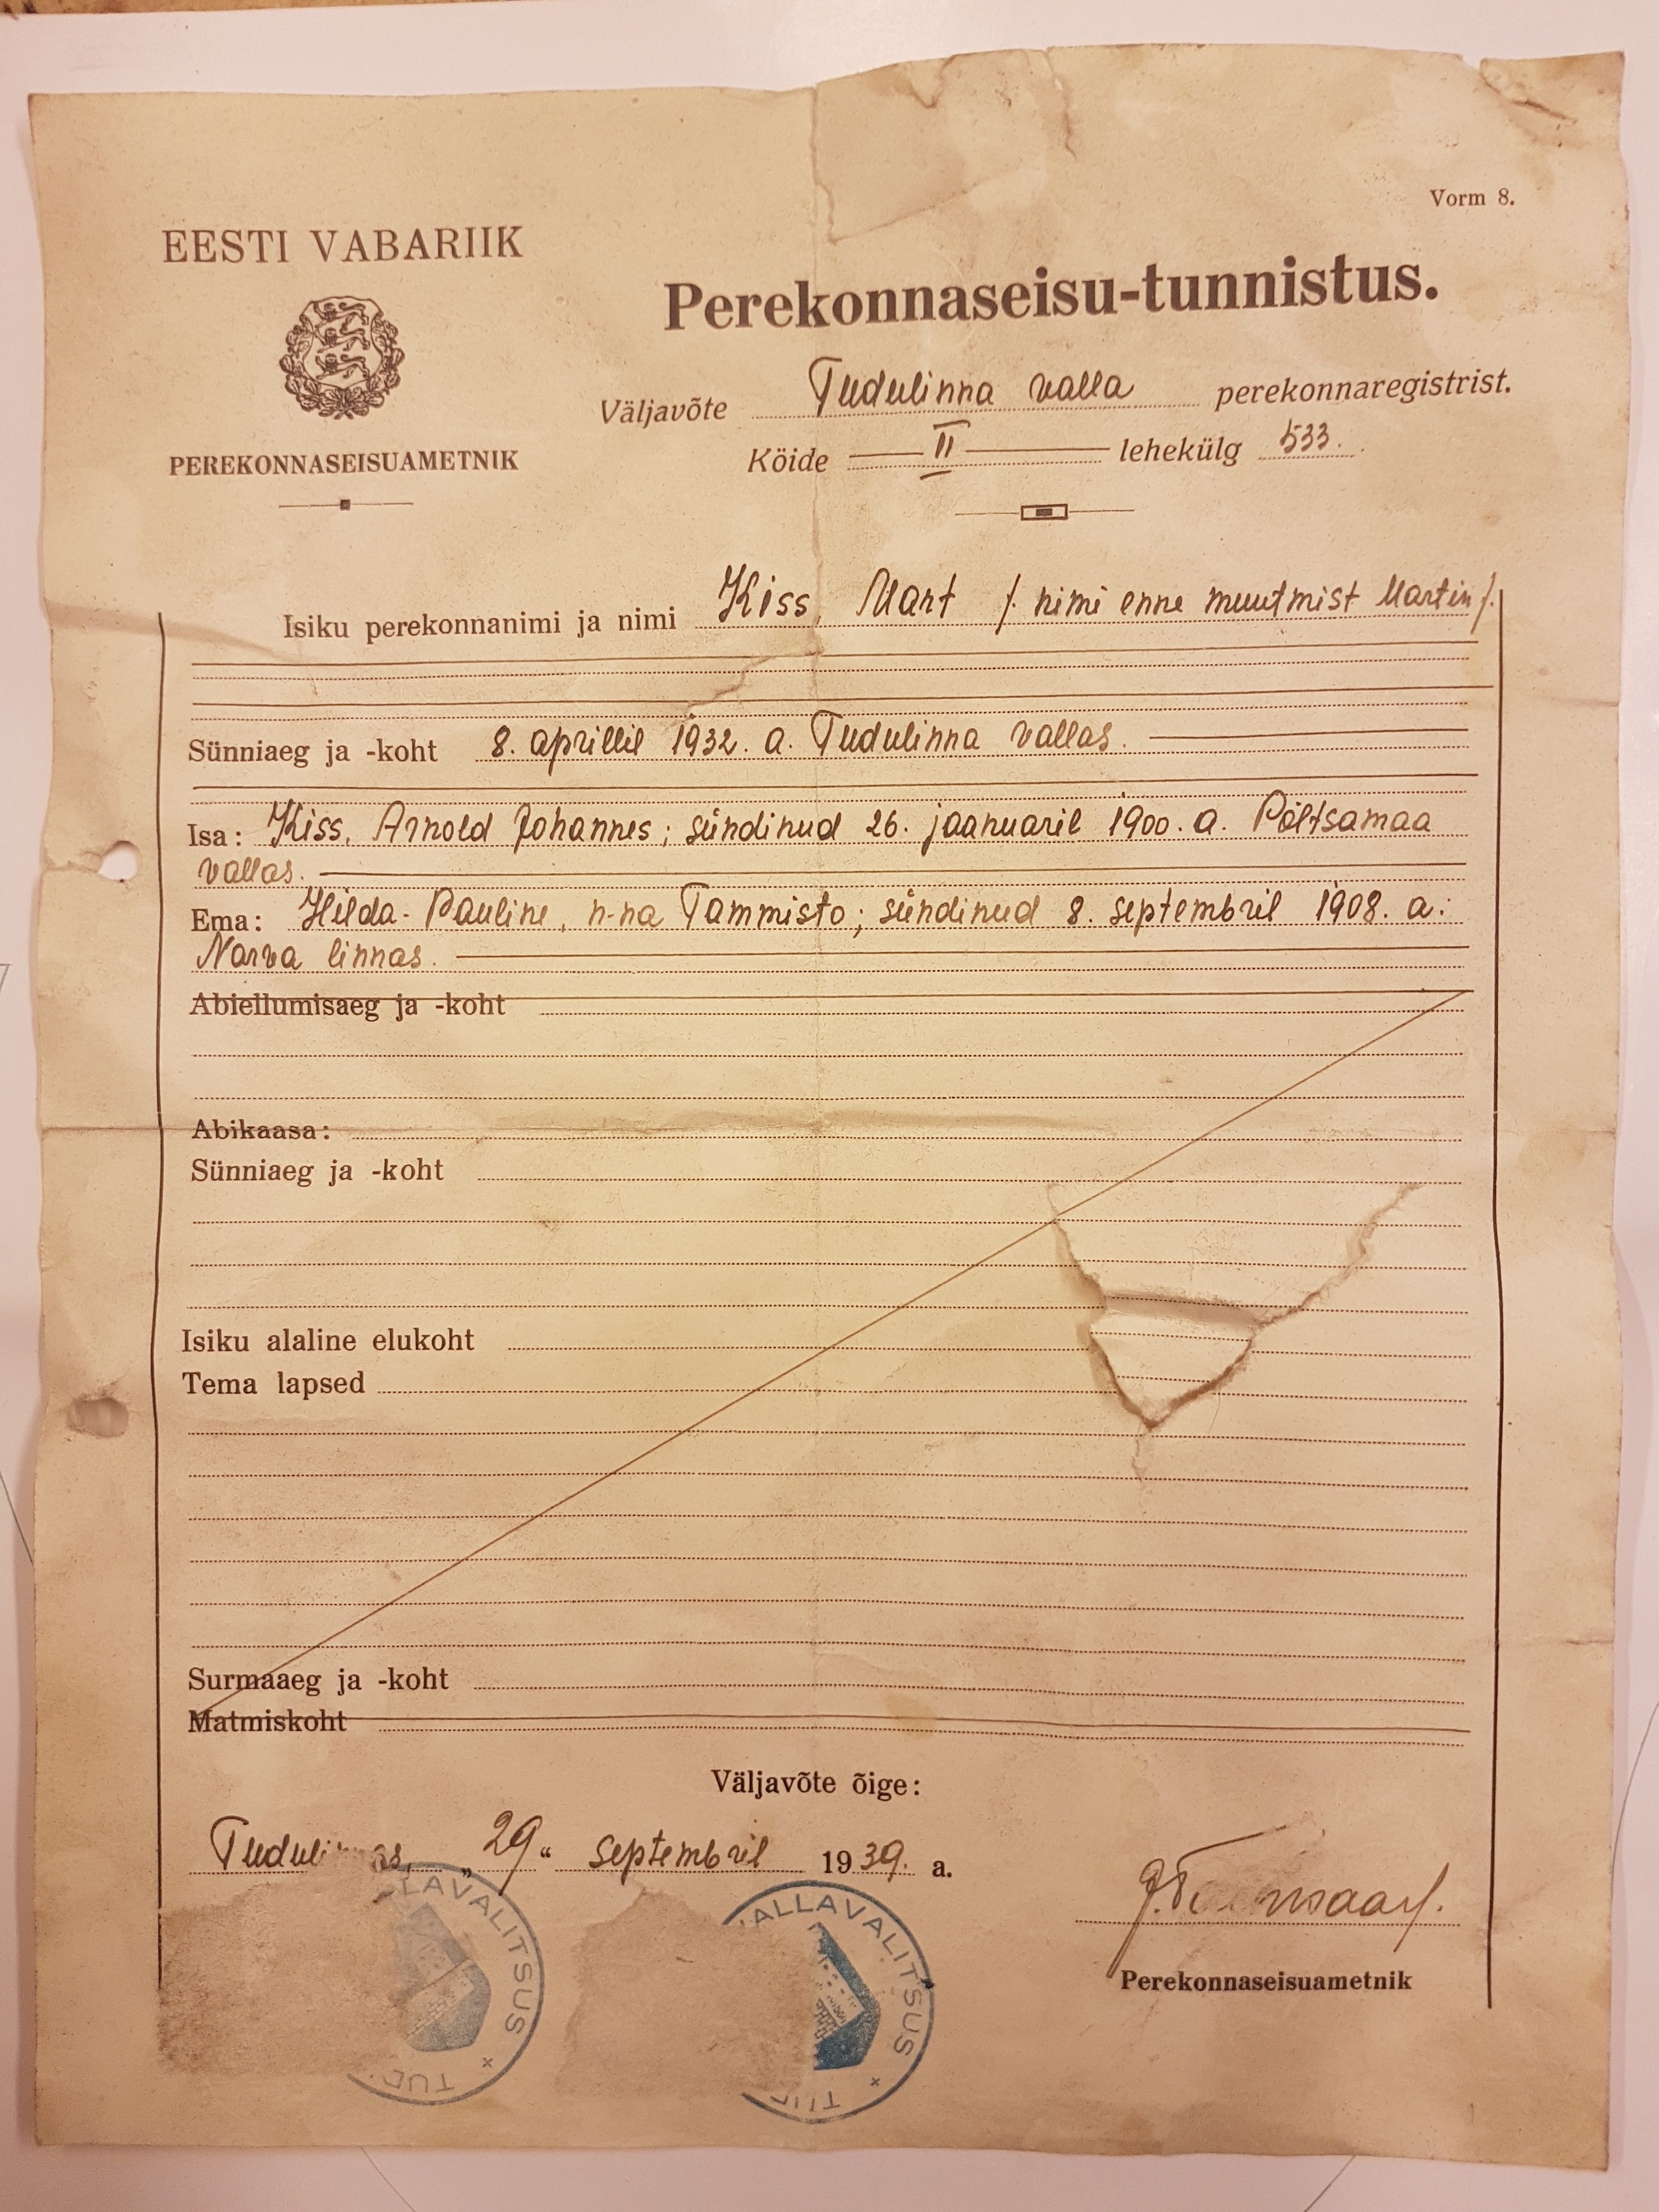 Vorm 8.
EESTI VABARIIK
PEREKONNASEISUAMETNIK
Perekonnaseisu-tunnistus.
Väljavõte Tudulinna valla perekonnaregistrist.
Köide II lehekülg 533.
Isiku perekonnanimi ja nimi Kiss, Mart /. nimi enne muutmist Martin /.
Sünniaeg ja -koht 8. aprillil 1932. a. Tudulinna vallas.
Isa: Kiss, Arnold Johannes; sündinud 26. jaanuaril 1900. a. Põltsamaa
vallas.
Ema: Hilda-Pauline, n-na Tammisto; sündinud 8. septembril 1908. a.
Narva linnas.
Abiellumisaeg ja -koht
Abikaasa:
Sünniaeg ja -koht
Isiku alaline elukoht
Tema lapsed
Surmaaeg ja -koht
Matmiskoht
Väljavõte õige:
„29“ septembril 1939. a.
Perekonnaseisuametnik
LAVALITSUS + TUD
ALLAVALITSUS +